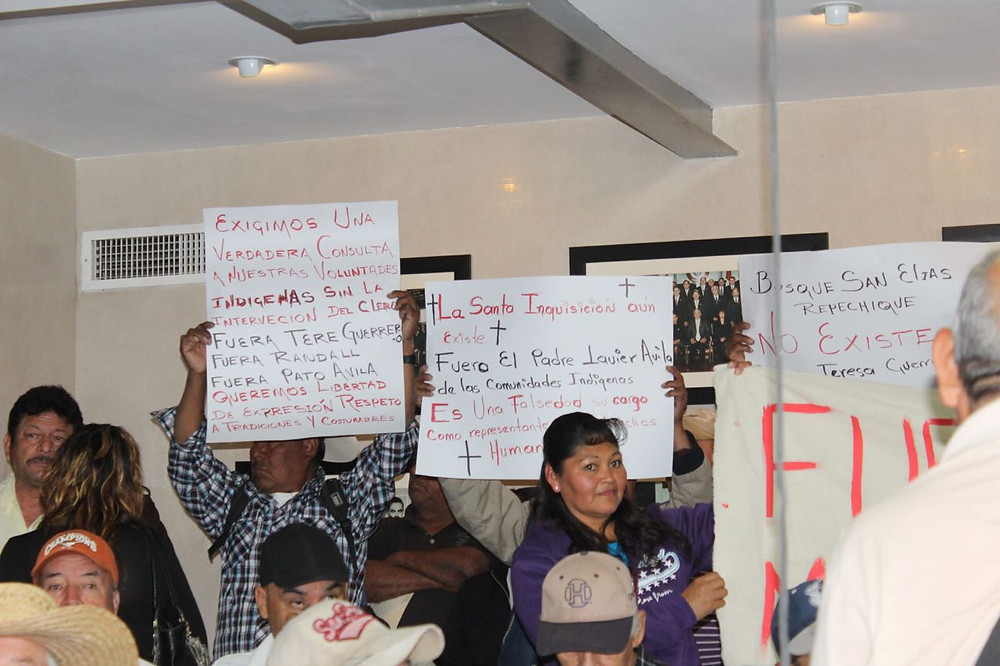 EXIGIMOS UNA
VERDADERA CONSULTA
A NUESTRAS VOLUNTADES
INDIGENAS SIN LA
INTERVECION DEL CLERO
FUERA TERE GUERRERO
FUERA RANDALL
FUERA PATO AVILA
QUEREMOS LIBERTAD
DE EXPRESIÓN RESPETO
A TRADICIONES Y COSTUMBRES
La Santa Inquisición aún
Existe
Fuera El Padre Javier Avila
de las Comunidades Indigenas
Es Una Falsedad su cargo
como representante
Human
BOSQUE SAN ELIAS
REPECHIQUE
NO EXISTE
TERESA GUERR
FUE
CHAMPIONS